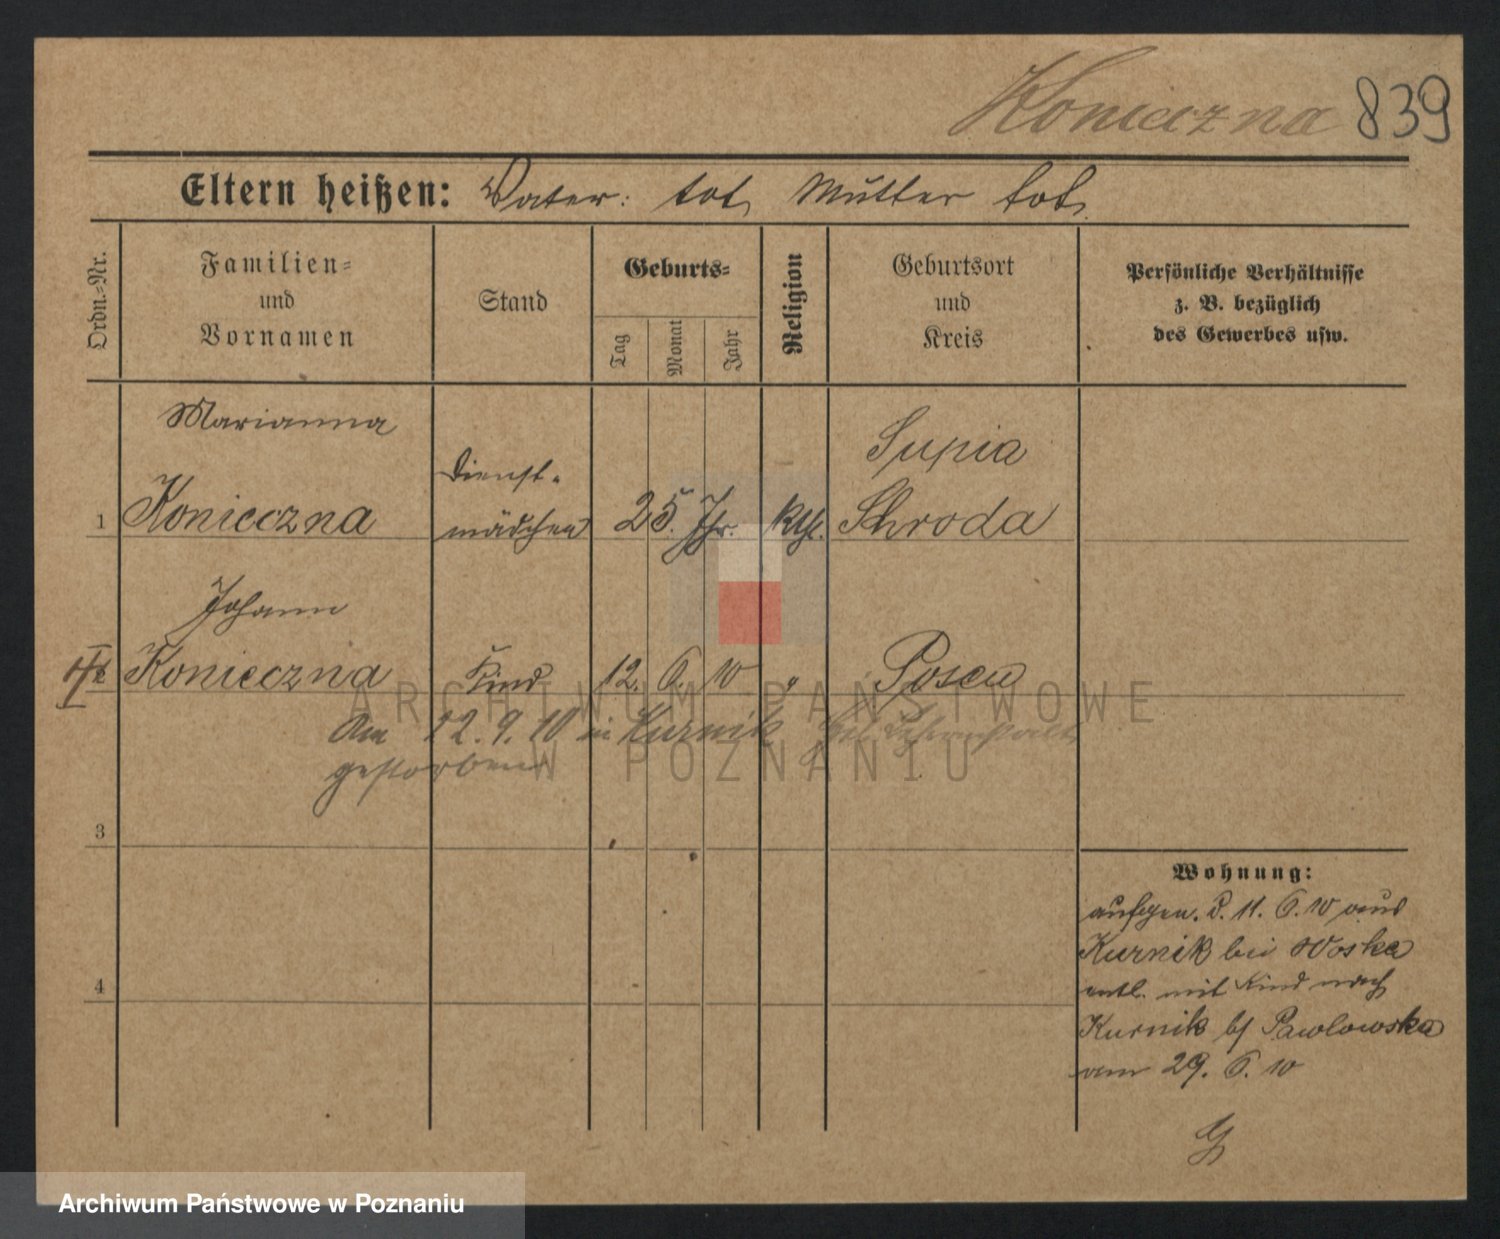 Konieczna 839
Eltern heißen: Vater: tot, Mutter tot.
Ordn.-Nr.
Familien-
und
Vornamen
Stand
Geburts-
Tag
Monat
Jahr
Religion
Geburtsort
und
Kreis
Persönliche Verhältnisse
z. B. bezüglich
des Gewerbes usw.
Marianna
Dienst-
Supia
1 Konieczna mädchen 25. Jhr. kth. Schroda
Johann
Konieczna Kind 12. 6. 10 " Posen
Am 12.9.10 in Kurnik
gestorben
3
4
Wohnung:
aufgen. d. 11. 6. 10 aus
Kurnik bei Woska
entl. mit Kind nach
Kurnik b/ Pawlowska
am 29. 6. 10
ARCHIWUM PAŃSTWOWE
W POZNANIU
Archiwum Państwowe w Poznaniu